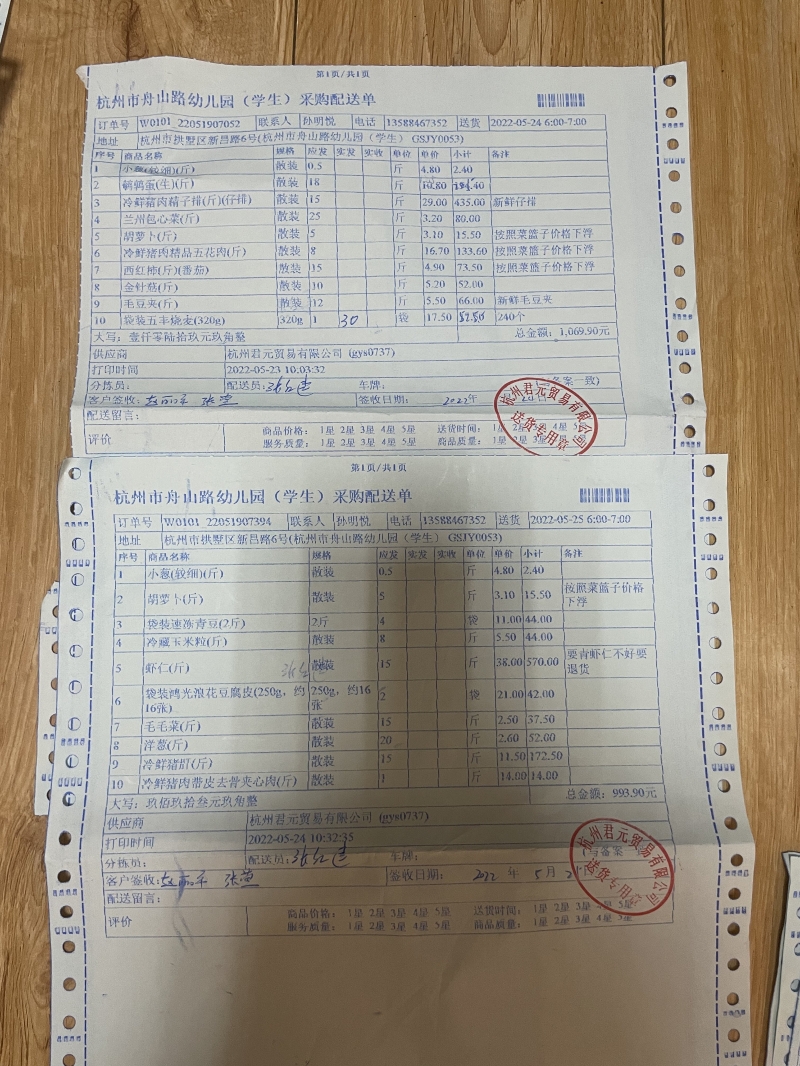 第1页/共1页
杭州市舟山路幼儿园（学生）采购配送单
订单号 W0101 22051907052 联系人 孙明悦 电话 13588467352 送货 2022-05-24 6:00-7:00
地址 杭州市拱墅区新昌路6号(杭州市舟山路幼儿园（学生） GSJY0053)
序号 商品名称 规格 应发 实发 实收 单位 单价 小计 备注
1 小葱(较细)(斤) 散装 0.5 斤 4.80 2.40
2 鹌鹑蛋(生)(斤) 散装 18 斤 10.80
3 冷鲜猪肉精子排(斤)(仔排) 散装 15 斤 29.00 435.00 新鲜仔排
4 兰州包心菜(斤) 散装 25 斤 3.20 80.00
5 胡萝卜(斤) 散装 5 斤 3.10 15.50 按照菜篮子价格下浮
6 冷鲜猪肉精品五花肉(斤) 散装 8 斤 16.70 133.60 按照菜篮子价格下浮
7 西红柿(斤)(番茄) 散装 15 斤 4.90 73.50 按照菜篮子价格下浮
8 金针菇(斤) 散装 10 斤 5.20 52.00
9 毛豆夹(斤) 散装 12 斤 5.50 66.00 新鲜毛豆夹
10 袋装五丰烧麦(320g) 320g 1 30 袋 17.50 240个
大写：壹仟零陆拾玖元玖角整 总金额：1,069.90元
供应商 杭州君元贸易有限公司 (gys0737)
打印时间 2022-05-23 10:03:32
分拣员： 配送员： 车牌： 备案一致)
客户签收： 签收日期： 2022年
配送留言：
评价 商品价格： 1星 2星 3星 4星 5星 送货时间： 1星 2星 4星 5星
服务质量： 1星 2星 3星 4星 5星 商品质量： 1星
杭州君元贸易有限公司
送货专用章
第1页/共1页
杭州市舟山路幼儿园（学生）采购配送单
订单号 W0101 22051907394 联系人 孙明悦 电话 13588467352 送货 2022-05-25 6:00-7:00
地址 杭州市拱墅区新昌路6号(杭州市舟山路幼儿园（学生） GSJY0053)
序号 商品名称 规格 应发 实发 实收 单位 单价 小计 备注
1 小葱(较细)(斤) 散装 0.5 斤 4.80 2.40
2 胡萝卜(斤) 散装 5 斤 3.10 15.50 按照菜篮子价格
下浮
3 袋装速冻青豆(2斤) 2斤 4 袋 11.00 44.00
4 冷藏玉米粒(斤) 散装 8 斤 5.50 44.00
5 虾仁(斤) 散装 15 斤 38.00 570.00 要青虾仁不好要
退货
6 袋装鸿光浪花豆腐皮(250g，约
16张) 250g，约16
张 2 袋 21.00 42.00
7 毛毛菜(斤) 散装 15 斤 2.50 37.50
8 洋葱(斤) 散装 20 斤 2.60 52.00
9 冷鲜猪肝(斤) 散装 15 斤 11.50 172.50
10 冷鲜猪肉带皮去骨夹心肉(斤) 散装 1 斤 14.00 14.00
大写：玖佰玖拾叁元玖角整 总金额：993.90元
供应商 杭州君元贸易有限公司 (gys0737)
打印时间 2022-05-24 10:32:35
分拣员： 配送员： 车牌： (与备案
客户签收： 签收日期： 2022 年 5月
配送留言：
评价 商品价格： 1星 2星 3星 4星 5星 送货时间： 1星 2星 3星 4星 5星
服务质量： 1星 2星 3星 4星 5星 商品质量： 1星 2星 3星 4星 5星
杭州君元贸易有限公司
送货专用章